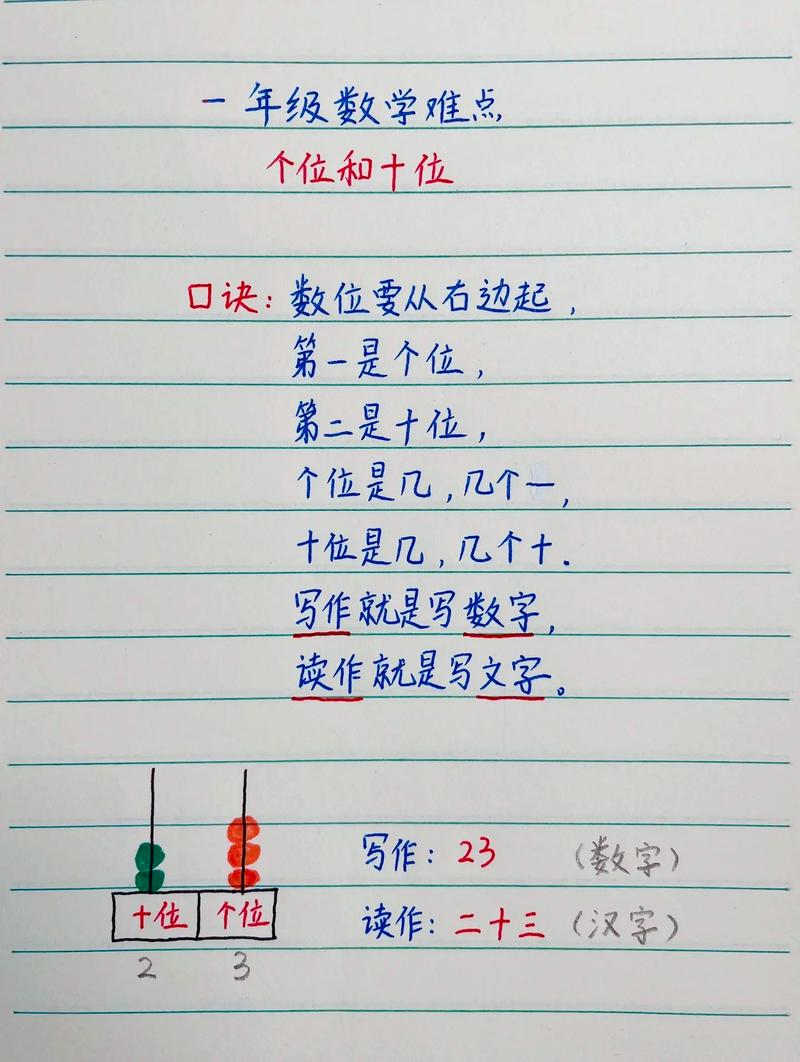 一年级数学难点
个位和十位
口诀：数位要从右边起，
第一是个位，
第二是十位，
个位是几，几个一，
十位是几，几个十.
写作就是写数字，
读作就是写文字。
写作：23 （数字）
十位 个位 读作：二十三（汉字）
2 3